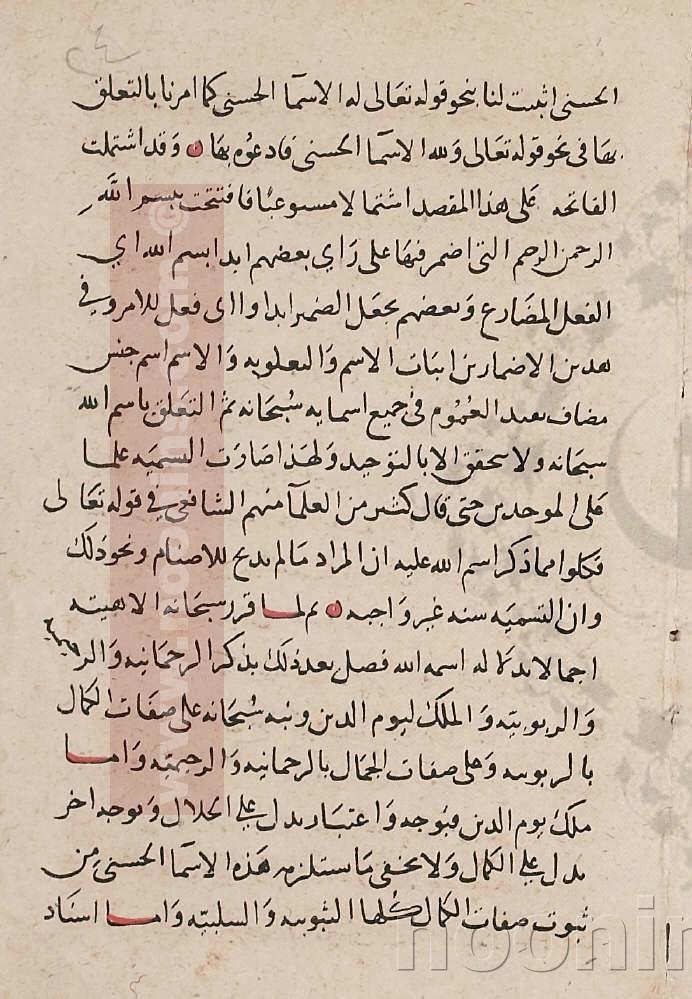 ٢٤
الحسنى اثبت لنا بنحو قوله تعالى له الاسما الحسنى كما امرنا بالتعلق
بها فى نحو قوله تعالى ولله الاسما الحسنى فادعوه بها وقد اشتملت
الفاتحه على هذا المقصد اشتمالا مستوعبا فافتتحت ببسم الله
الرحمن الرحيم التى اضمر فيها على راي بعضهم ابدا بسم الله اي
الفعل المضارع وبعضهم يجعل الضمير ابداوا اى فعل للامر وفي
هدين الاضمارين اثبات الاسم والتعلق به والاسم اسم جنس
مضاف يفيد العموم فى جميع اسمايه سبحانه ثم التعلق باسم الله
سبحانه ولا يتحقق الا بالتوحيد ولهذا صارت التسميه علما
على الموحدين حتى قال كثير من العلمآ منهم الشافعي في قوله تعالى
فكلوا مما ذكر اسم الله عليه ان المراد ما لم يذبح للاصنام ونحو ذلك
وان التسميه سنه غير واجبه ثم لما قرر سبحانه الاهيته
اجمالا بدلالة اسمه الله فصل بعد ذلك بذكر الرحمانيه والرحيميه
والربوبيه والملك ليوم الدين ونبه سبحانه على صفات الكمال
بالربوبيه وعلى صفات الجمال بالرحمانيه والرحيميه واما
ملك يوم الدين فبوجه واعتبار يدل على الجلال وبوجه اخر
يدل على الكمال ولا يخفى ما يستلزمه هذه الاسما الحسنى من
ثبوت صفات الكمال كلها الثبوتيه والسلبيه واما اسناد
noonin